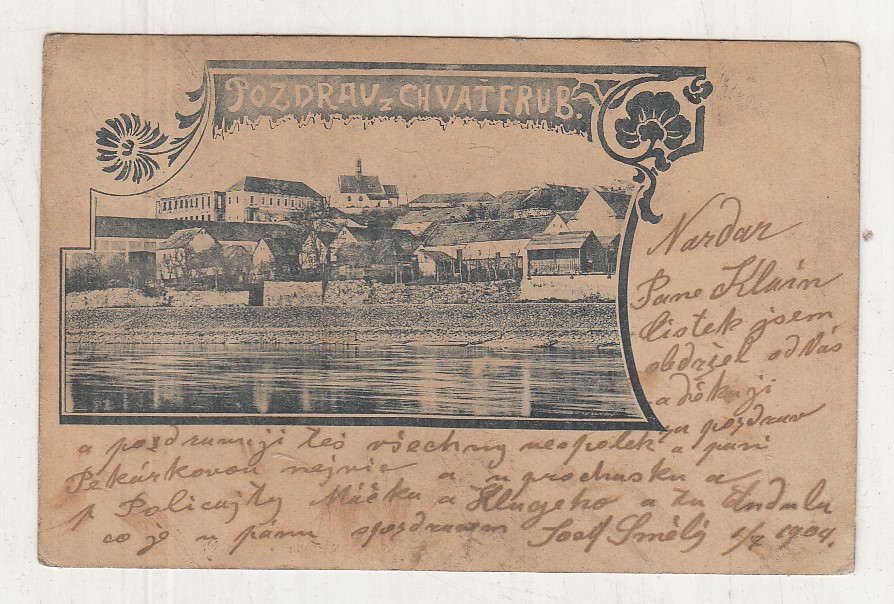 POZDRAV z CHVATĚRUB.
Nazdar
Pane Klain
listek jsem
obdržel od Vás
a děkuji
za pozdrav
a pozdravuji též všechny neopolek a paní
Pekárkovou nejvic a u prochusku a
p Policajty Máčku a Klugeho a tu Andulu
co je u pánu spozdravem Josef Smělý 1/7 1904.